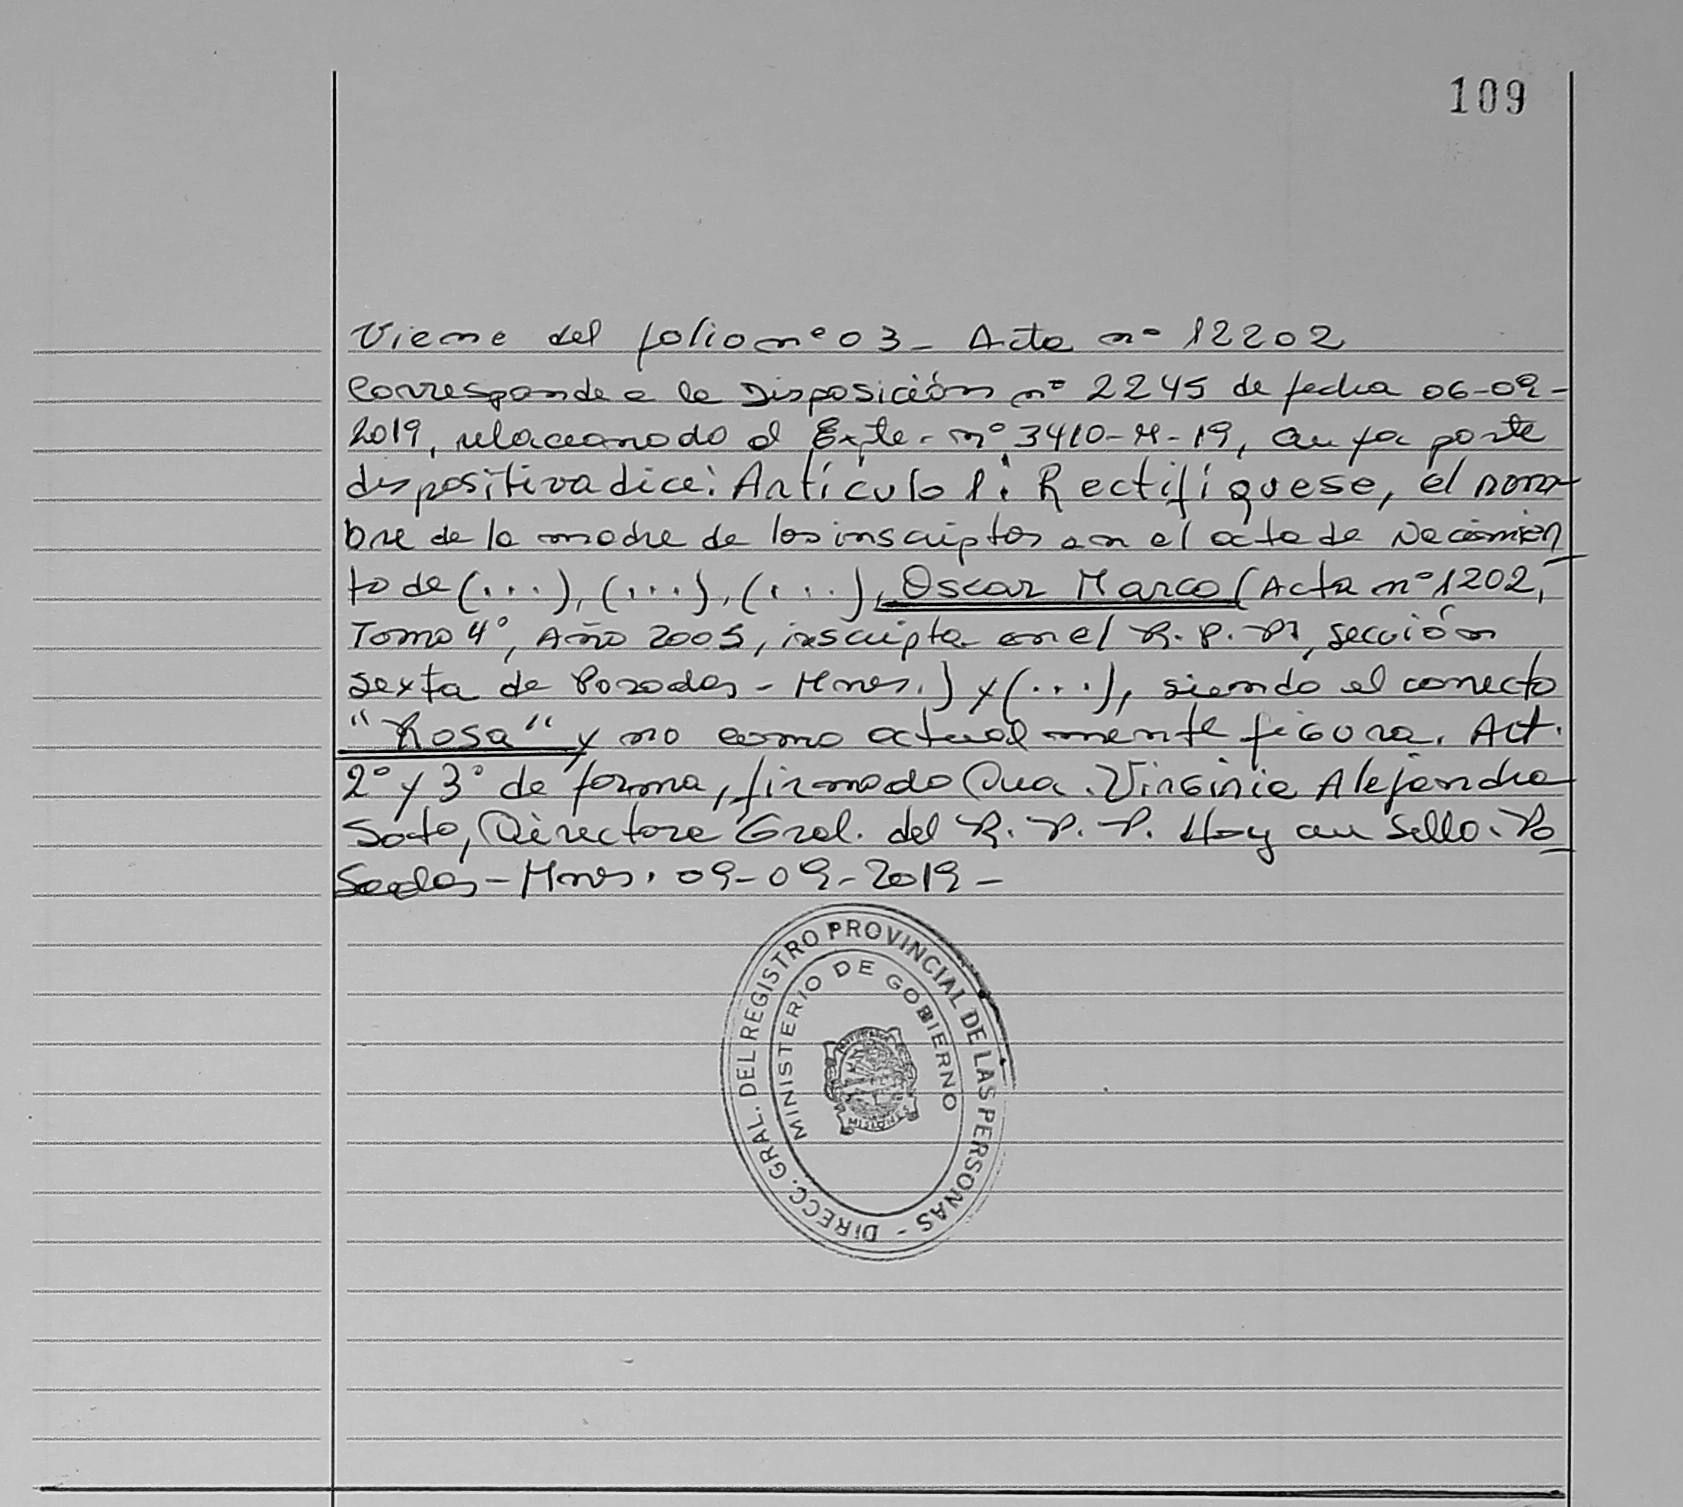 109
Viene del folio nº 03 - Acta nº 12202
Corresponde a la Disposición nº 2245 de fecha 06-09-
2019, relacionado al Expte. nº 3410-M-19, cuya parte
dispositiva dice: Artículo 1: Rectifíquese, el nom-
bre de la madre de los inscriptos en el acta de Nacimien
to de (...), (...), (...), Oscar Marco (Acta nº 1202,
Tomo 4º, Año 2005, inscripta en el R.P.P, sección
sexta de Posadas - Mnes.) y (...), siendo el correcto
"Rosa" y no como actualmente figura. Art.
2º y 3º de forma, firmado Dra. Virginia Alejandra
Soto, Directora Gral. del R.P.P. Hay un sello. Po
sadas - Mnes. 09-09-2019 -
DIRECC. GRAL. DEL REGISTRO PROVINCIAL DE LAS PERSONAS -
MINISTERIO DE GOBIERNO